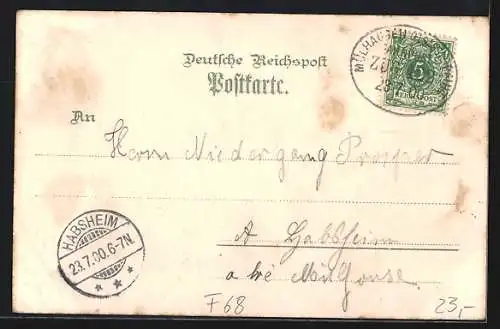 Deutsche Reichspost
Postkarte.
MÜLHAUSEN
ZUG
23.7.00
5
REICHSPOST
An
Herrn Niedergang Prosper
HABSHEIM
23.7.00.6-7N.
A Habsheim
Mulhouse.
F68
23,-